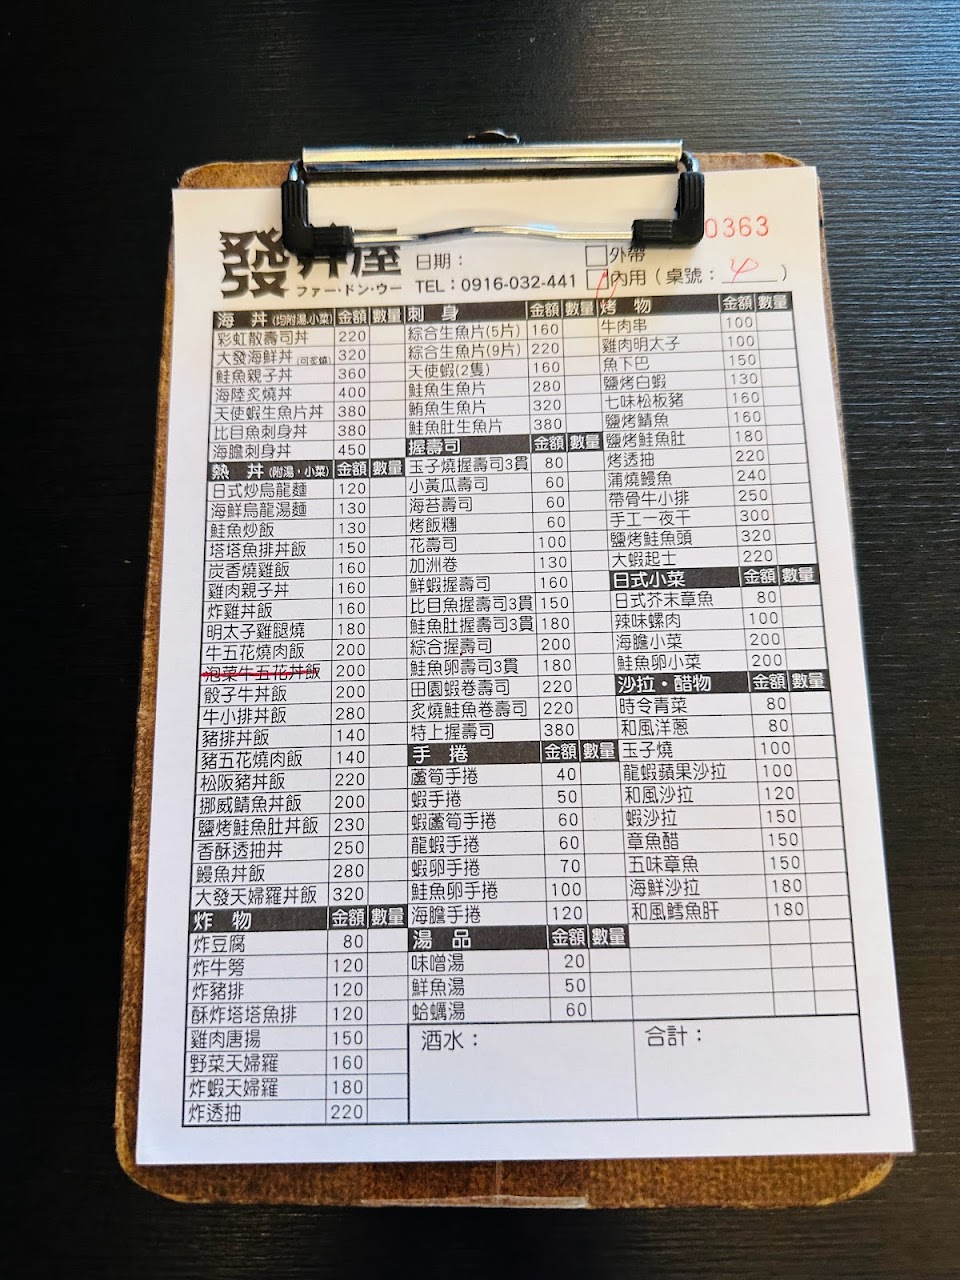 發丼屋
ファー・ドン・ウー
日期：
TEL：0916-032-441
外帶
內用（桌號：4）
0363
海 丼 (均附湯.小菜) 金額 數量
彩虹散壽司丼 220
大發海鮮丼 (可炙燒) 320
鮭魚親子丼 360
海陸炙燒丼 400
天使蝦生魚片丼 380
比目魚刺身丼 380
海膽刺身丼 450
熱 丼 (附湯，小菜) 金額 數量
日式炒烏龍麵 120
海鮮烏龍湯麵 130
鮭魚炒飯 130
塔塔魚排丼飯 150
炭香燒雞飯 160
雞肉親子丼 160
炸雞丼飯 160
明太子雞腿燒 180
牛五花燒肉飯 200
泡菜牛五花丼飯 200
骰子牛丼飯 200
牛小排丼飯 280
豬排丼飯 140
豬五花燒肉飯 140
松阪豬丼飯 220
挪威鯖魚丼飯 200
鹽烤鮭魚肚丼飯 230
香酥透抽丼 250
鰻魚丼飯 280
大發天婦羅丼飯 320
炸 物 金額 數量
炸豆腐 80
炸牛蒡 120
炸豬排 120
酥炸塔塔魚排 120
雞肉唐揚 150
野菜天婦羅 160
炸蝦天婦羅 180
炸透抽 220
刺 身 金額 數量
綜合生魚片(5片) 160
綜合生魚片(9片) 220
天使蝦(2隻) 160
鮭魚生魚片 280
鮪魚生魚片 320
鮭魚肚生魚片 380
握壽司 金額 數量
玉子燒握壽司3貫 80
小黃瓜壽司 60
海苔壽司 60
烤飯糰 60
花壽司 100
加洲卷 130
鮮蝦握壽司 160
比目魚握壽司3貫 150
鮭魚肚握壽司3貫 180
綜合握壽司 200
鮭魚卵壽司3貫 180
田園蝦卷壽司 220
炙燒鮭魚卷壽司 220
特上握壽司 380
手 捲 金額 數量
蘆筍手捲 40
蝦手捲 50
蝦蘆筍手捲 60
龍蝦手捲 60
蝦卵手捲 70
鮭魚卵手捲 100
海膽手捲 120
湯 品 金額 數量
味噌湯 20
鮮魚湯 50
蛤蠣湯 60
酒水：
烤 物 金額 數量
牛肉串 100
雞肉明太子 100
魚下巴 150
鹽烤白蝦 130
七味松板豬 160
鹽烤鯖魚 160
鹽烤鮭魚肚 180
烤透抽 220
蒲燒鰻魚 240
帶骨牛小排 250
手工一夜干 300
鹽烤鮭魚頭 320
大蝦起士 220
日式小菜 金額 數量
日式芥末章魚 80
辣味螺肉 100
海膽小菜 200
鮭魚卵小菜 200
沙拉・醋物 金額 數量
時令青菜 80
和風洋蔥 80
玉子燒 100
龍蝦蘋果沙拉 100
和風沙拉 120
蝦沙拉 150
章魚醋 150
五味章魚 150
海鮮沙拉 180
和風鱈魚肝 180
合計：